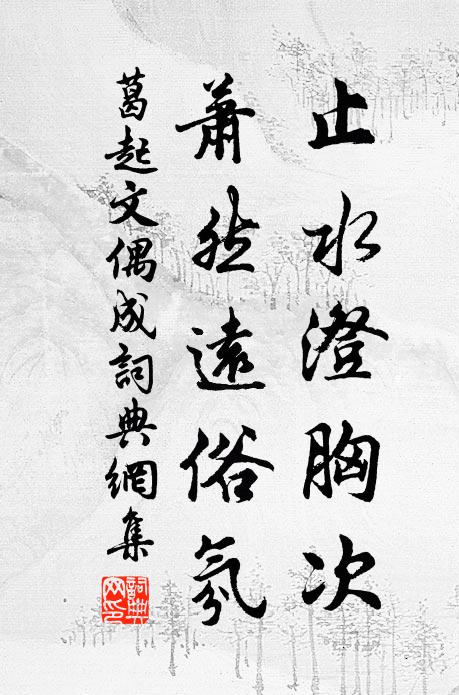 止水澄胸次
蕭然遠俗氛
葛起文偶成詞典網集
詞典網印